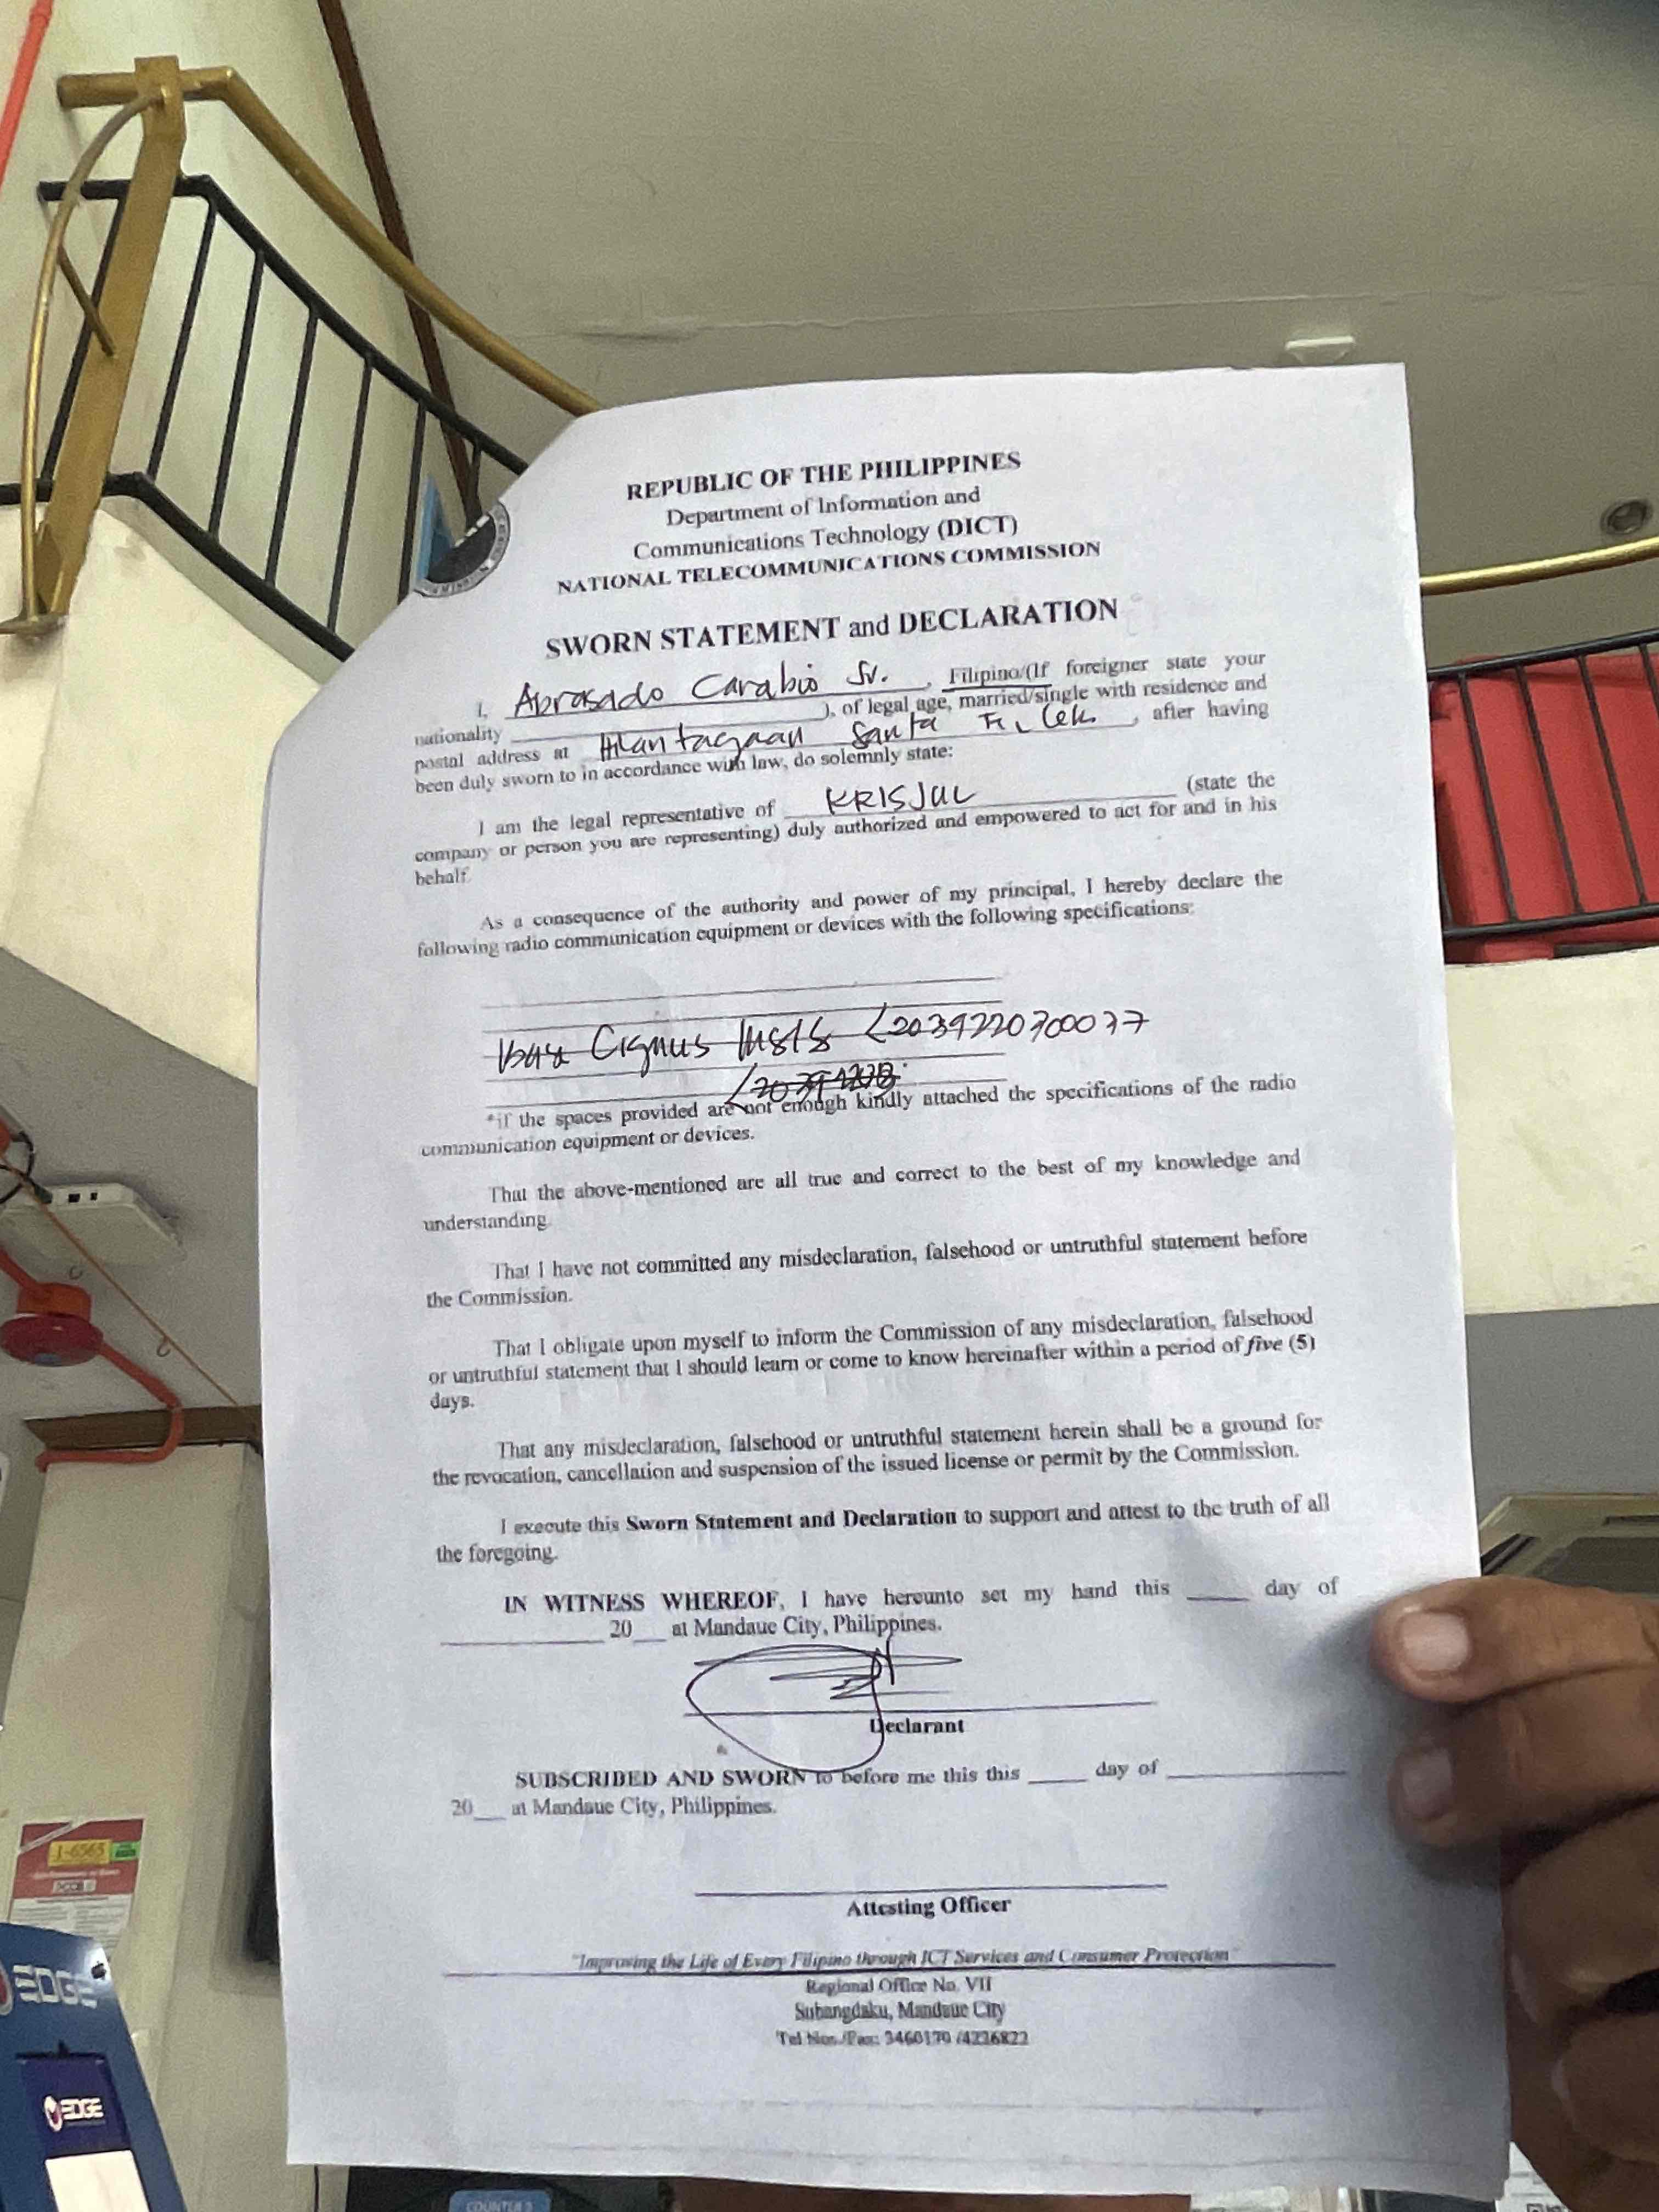 REPUBLIC OF THE PHILIPPINES
Department of Information and
Communications Technology (DICT)
NATIONAL TELECOMMUNICATIONS COMMISSION
SWORN STATEMENT and DECLARATION
I, Abrasado Carabio Sr. , Filipino/(If foreigner state your
nationality ____________ ), of legal age, married/single with residence and
postal address at Hilantagaan Santa Fe, Ceb. , after having
been duly sworn to in accordance with law, do solemnly state:
I am the legal representative of KRISJUL (state the
company or person you are representing) duly authorized and empowered to act for and in his
behalf.
As a consequence of the authority and power of my principal, I hereby declare the
following radio communication equipment or devices with the following specifications:
Cignus
*if the spaces provided are not enough kindly attached the specifications of the radio
communication equipment or devices.
That the above-mentioned are all true and correct to the best of my knowledge and
understanding.
That I have not committed any misdeclaration, falsehood or untruthful statement before
the Commission.
That I obligate upon myself to inform the Commission of any misdeclaration, falsehood
or untruthful statement that I should learn or come to know hereinafter within a period of five (5)
days.
That any misdeclaration, falsehood or untruthful statement herein shall be a ground for
the revocation, cancellation and suspension of the issued license or permit by the Commission.
I execute this Sworn Statement and Declaration to support and attest to the truth of all
the foregoing.
IN WITNESS WHEREOF, I have hereunto set my hand this ____ day of
____________ 20__ at Mandaue City, Philippines.
Declarant
SUBSCRIBED AND SWORN to before me this this ____ day of ____________
20__ at Mandaue City, Philippines.
Attesting Officer
"Improving the Life of Every Filipino through ICT Services and Consumer Protection"
Regional Office No. VII
Subangdaku, Mandaue City
Tel Nos./Fax: 3460170 /4226822
J-6565
EDGE
EDGE
COUNTER 3